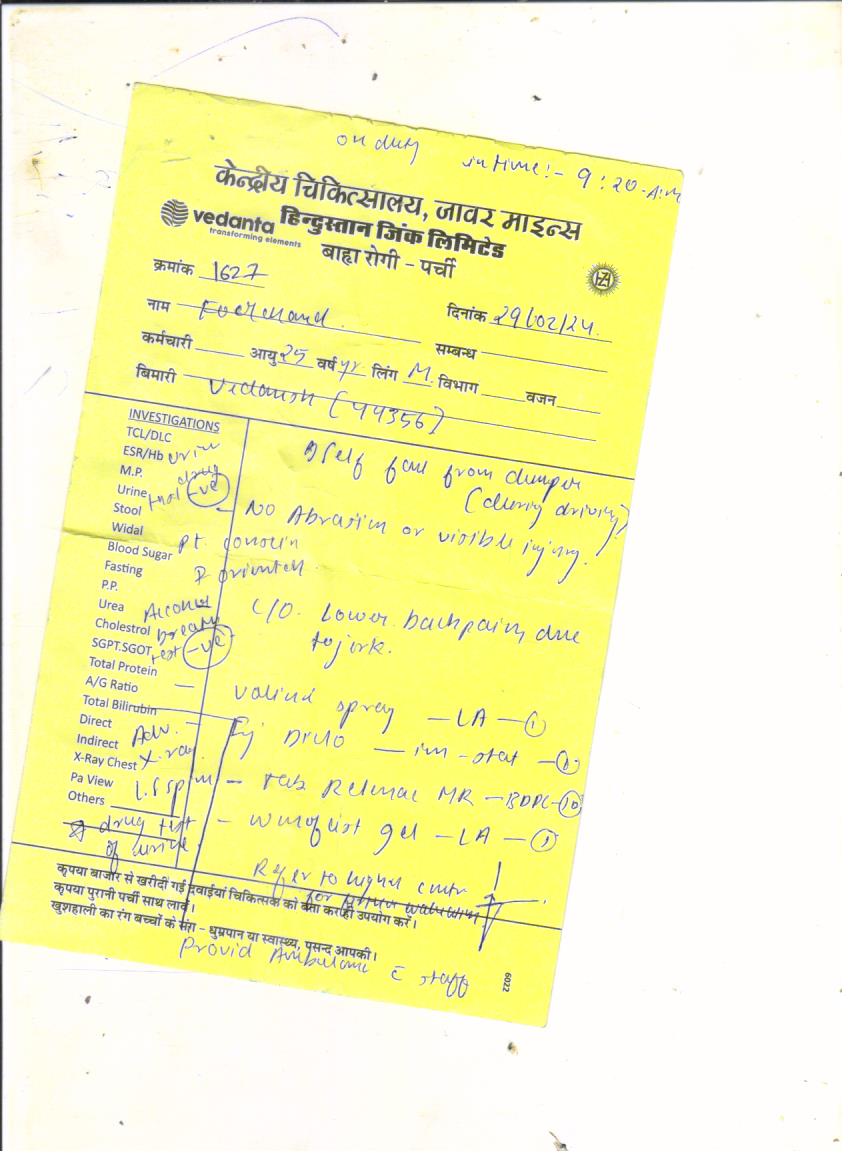 on duty in time:- 9:20 A.M
केन्द्रीय चिकित्सालय, जावर माइन्स
vedanta हिन्दुस्तान जिंक लिमिटेड
transforming elements
बाह्य रोगी - पर्ची
क्रमांक 1627
नाम दिनांक 29/02/24.
कर्मचारी आयु 25 वर्ष yr लिंग M. विभाग वजन
सम्बन्ध
बिमारी (44356)
INVESTIGATIONS
TCL/DLC
ESR/Hb urine
M.P. drug
Urine test -ve
Stool
Widal
Blood Sugar
Fasting
P.P.
Urea Alcohol
Cholestrol breath
SGPT.SGOT test -ve
Total Protein
A/G Ratio
Total Bilirubin
Direct
Indirect Adv.
X-Ray Chest X-ray
Pa View L.S spine
Others
drug test
of urine
Self fall from dumper
(during driving)
- NO Abrasion or visible injury.
Pt. conscious
& oriented.
C/O. Lower back pain due
to jerk.
spray - LA - 1
Inj Diclo - im - stat - 1
- Tab MR - BDPC - 10
- gel - LA - 1
Refer to higher center
for
कृपया बाजार से खरीदी गई दवाईयां चिकित्सक को बता कर ही उपयोग करें।
कृपया पुरानी पर्ची साथ लावें।
खुशहाली का रंग बच्चों के संग - धुम्रपान या स्वास्थ्य, पसन्द आपकी।
Provid Ambulance c̄ staff
6022